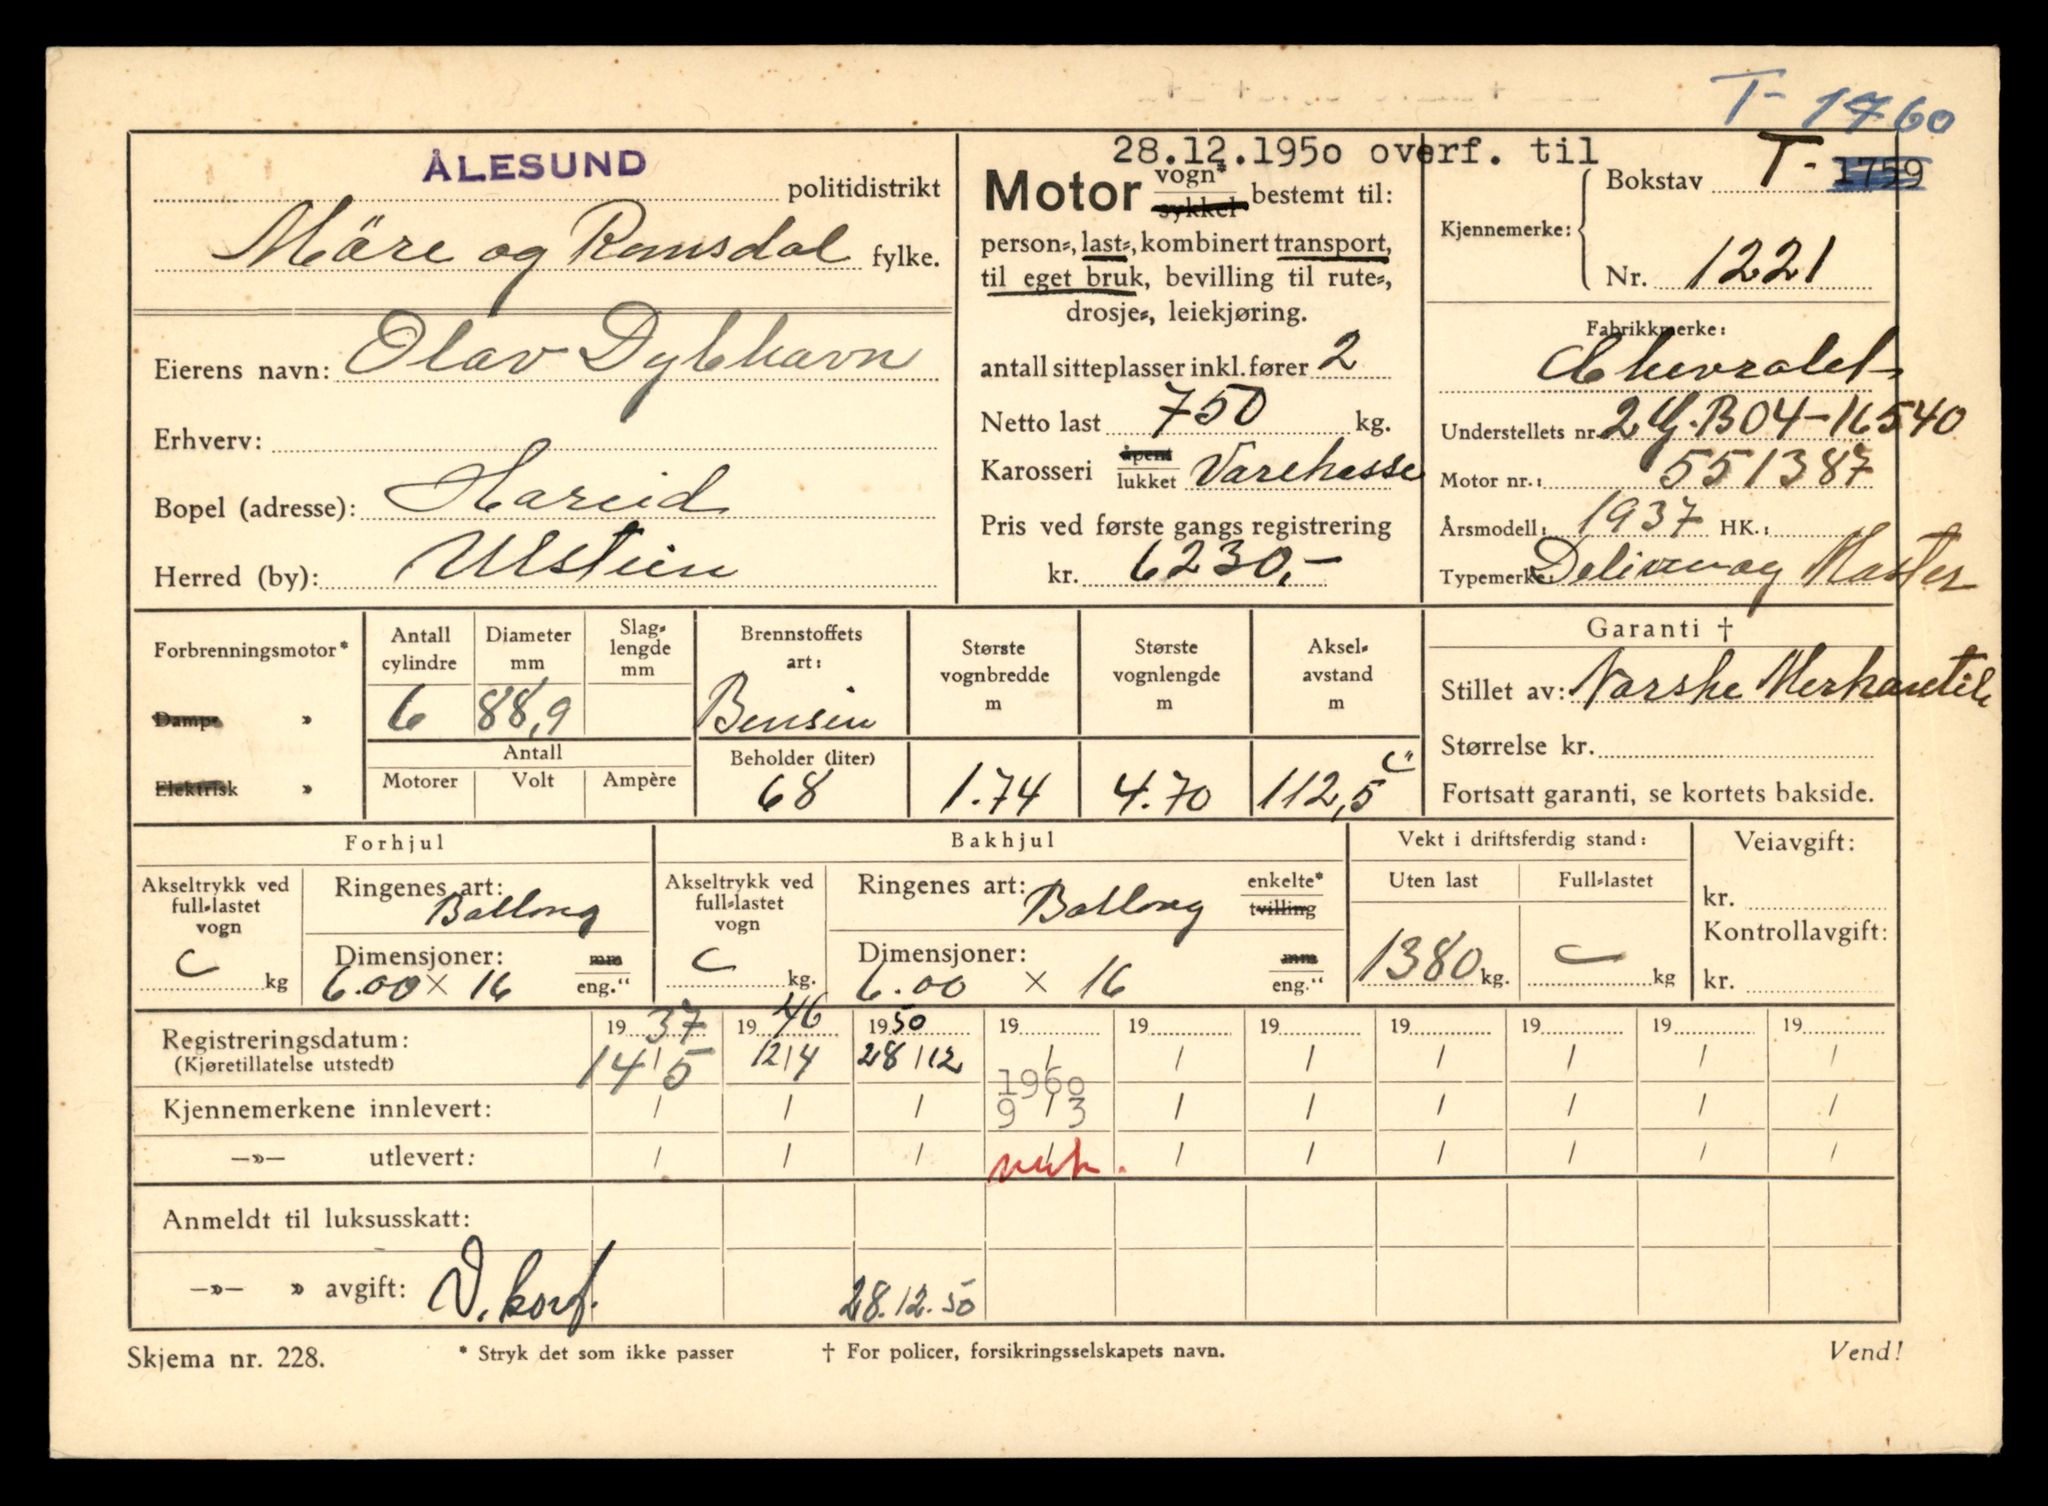 T- 1760
28.12.1950 overf. til
ÅLESUND politidistrikt
Möre og Romsdal fylke.
Eierens navn: Olav Dybhavn
Erhverv:
Bopel (adresse): Hareid
Herred (by): Ulstein
Motor vogn* sykkel bestemt til:
person-, last-, kombinert transport,
til eget bruk, bevilling til rute-,
drosje-, leiekjøring.
antall sitteplasser inkl. fører 2
Netto last 750 kg.
Karosseri åpent lukket Varekasse
Pris ved første gangs registrering
kr. 6230,-
Kjennemerke: Bokstav T- 1759
Nr. 1221
Fabrikkmerke:
Chevrolet
Understellets nr. 2 G.B04-16540
Motor nr.: 551387
Årsmodell: 1937 HK.:
Typemerke: Master
Forbrenningsmotor*
Damp- »
Elektrisk »
Antall cylindre 6
Diameter mm 88,9
Slaglengde mm
Antall
Motorer Volt Ampère
Brennstoffets art:
Bensin
Beholder (liter)
68
Største vognbredde m
1.74
Største vognlengde m
4.70
Akselavstand m
112,5 "
Garanti †
Stillet av: Norske Merkantile
Størrelse kr.
Fortsatt garanti, se kortets bakside.
Forhjul
Akseltrykk ved full-lastet vogn
kg
Ringenes art:
Ballong
Dimensjoner:
6.00 × 16 mm eng."
Bakhjul
Akseltrykk ved full-lastet vogn
kg.
Ringenes art: Ballong enkelte* tvilling
Dimensjoner:
6.00 × 16 mm eng."
Vekt i driftsferdig stand:
Uten last Full-lastet
1380 kg. kg
Veiavgift:
kr.
Kontrollavgift:
kr.
Registreringsdatum: 19 37 19 46 19 50 19 19 19 19 19 19 19
(Kjøretillatelse utstedt) 14/5 12/4 28/12 / / / / / / /
1960
Kjennemerkene innlevert: / / / 9/3 / / / / / /
—»— utlevert: / / / / / / / / / /
Anmeldt til luksusskatt:
—»— » avgift: V. korf. 28.12.50
Skjema nr. 228. * Stryk det som ikke passer † For policer, forsikringsselskapets navn. Vend!